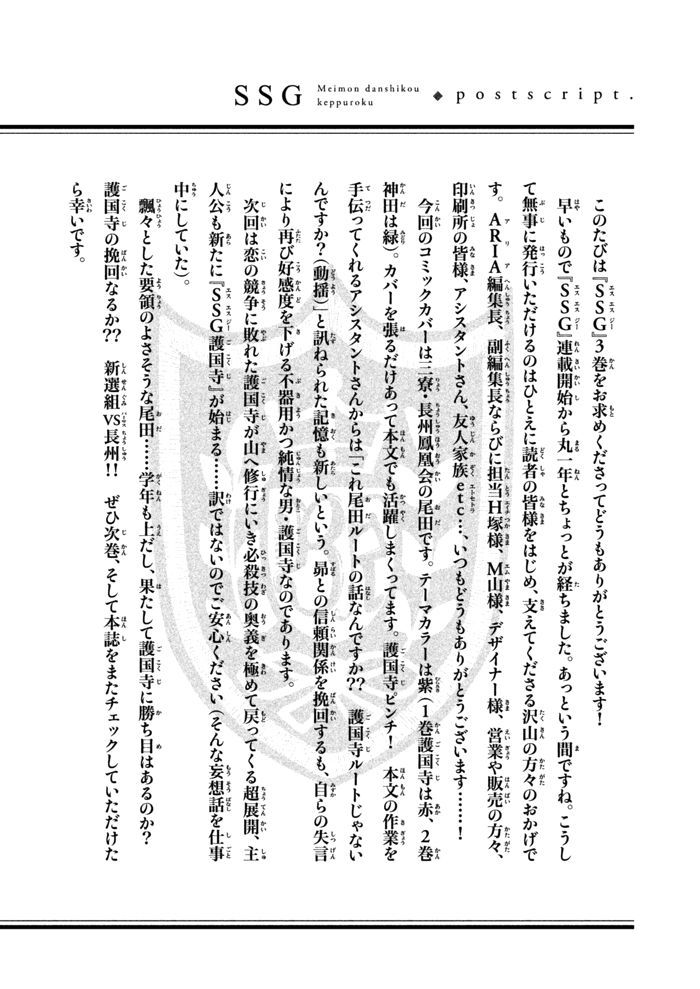 SSG
Meimon danshikou
keppuroku
◆postscript.
このたびは『SSG』3巻をお求めくださってどうもありがとうございます！
早いもので『SSG』連載開始から丸一年とちょっとが経ちました。あっという間ですね。こうし
て無事に発行いただけるのはひとえに読者の皆様をはじめ、支えてくださる沢山の方々のおかげで
す。ARIA編集長、副編集長ならびに担当H塚様、M山様、デザイナー様、営業や販売の方々、
印刷所の皆様、アシスタントさん、友人家族etc…、いつもどうもありがとうございます………！
今回のコミックカバーは三寮・長州鳳凰会の尾田です。テーマカラーは紫（1巻護国寺は赤、2巻
神田は緑）。カバーを張るだけあって本文でも活躍しまくってます。護国寺ピンチ！　本文の作業を
手伝ってくれるアシスタントさんからは「これ尾田ルートの話なんですか??　護国寺ルートじゃない
んですか？（動揺）」と訊ねられた記憶も新しいという。昴との信頼関係を挽回するも、自らの失言
により再び好感度を下げる不器用かつ純情な男・護国寺なのであります。
次回は恋の競争に敗れた護国寺が山へ修行にいき必殺技の奥義を極めて戻ってくる超展開、主
人公も新たに『SSG護国寺』が始まる……訳ではないのでご安心ください（そんな妄想話を仕事
中にしていた）。
飄々とした要領のよさそうな尾田……学年も上だし、果たして護国寺に勝ち目はあるのか？
護国寺の挽回なるか??　新選組vs長州!!　ぜひ次巻、そして本誌をまたチェックしていただけた
ら幸いです。